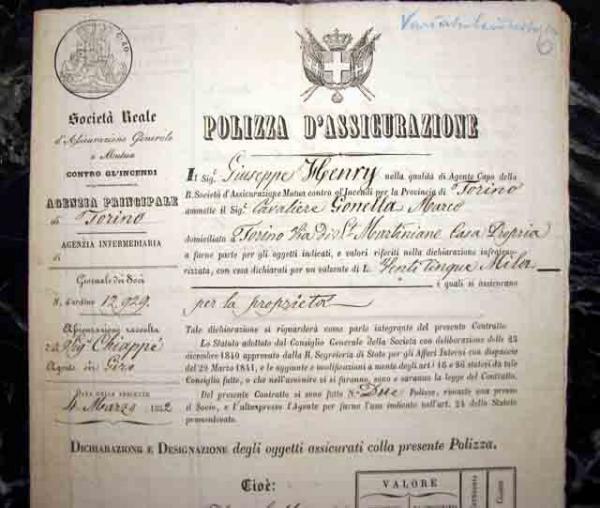 6
Società Reale
d'Assicurazione Generale
e Mutua
CONTRO GL'INCENDI
AGENZIA PRINCIPALE
di Torino
AGENZIA INTERMEDIARIA
di
Giornale dei Soci
N. d'ordine 12,929.
Assicurazione raccolta
Sig. Chiappé
Agente in Giro
DATA DELLE
4 Marzo 1852
POLIZZA D'ASSICURAZIONE
Il Sig. Giuseppe Henry nella qualità di Agente Capo della
R. Società d'Assicurazione Mutua contro gl'Incendi per la Provincia di Torino
ammette il Sig. Cavaliere Gonella Marco
domiciliato a Torino Via di St. Martiniano Casa Propria
a furne parte per gli oggetti indicati, e valori riferiti nella dichiarazione infraorga-
nizzata, con essa dichiarati per un valente di L. Venti cinque Mila
è quali si assicurano
per la proprietà
Tale dichiarazione si riguarderà come parte integrante del presente Contratto.
Lo Statuto adottato dal Consiglio Generale della Società con deliberazione delle 23
dicembre 1840 approvato dalla R. Segreteria di Stato per gli Affari Interni con dispaccio
del 29 Marzo 1841, e le aggiunte e modificazioni a mente degli art. 16 e 86 statuti da tale
Consiglio fatte, o che nell'avvenire si faranno, sono e saranno la legge del Contratto.
Del presente Contratto si sono fatte N.° Due Polizze, rimaste una presso
il Socio, e l'altra presso l'Agente per farne l'uso indicato nell'art. 24 dello Statuto
prementovato.
DICHIARAZIONE E DESIGNAZIONE degli oggetti assicurati colla presente Polizza.
Cioè:
VALORE